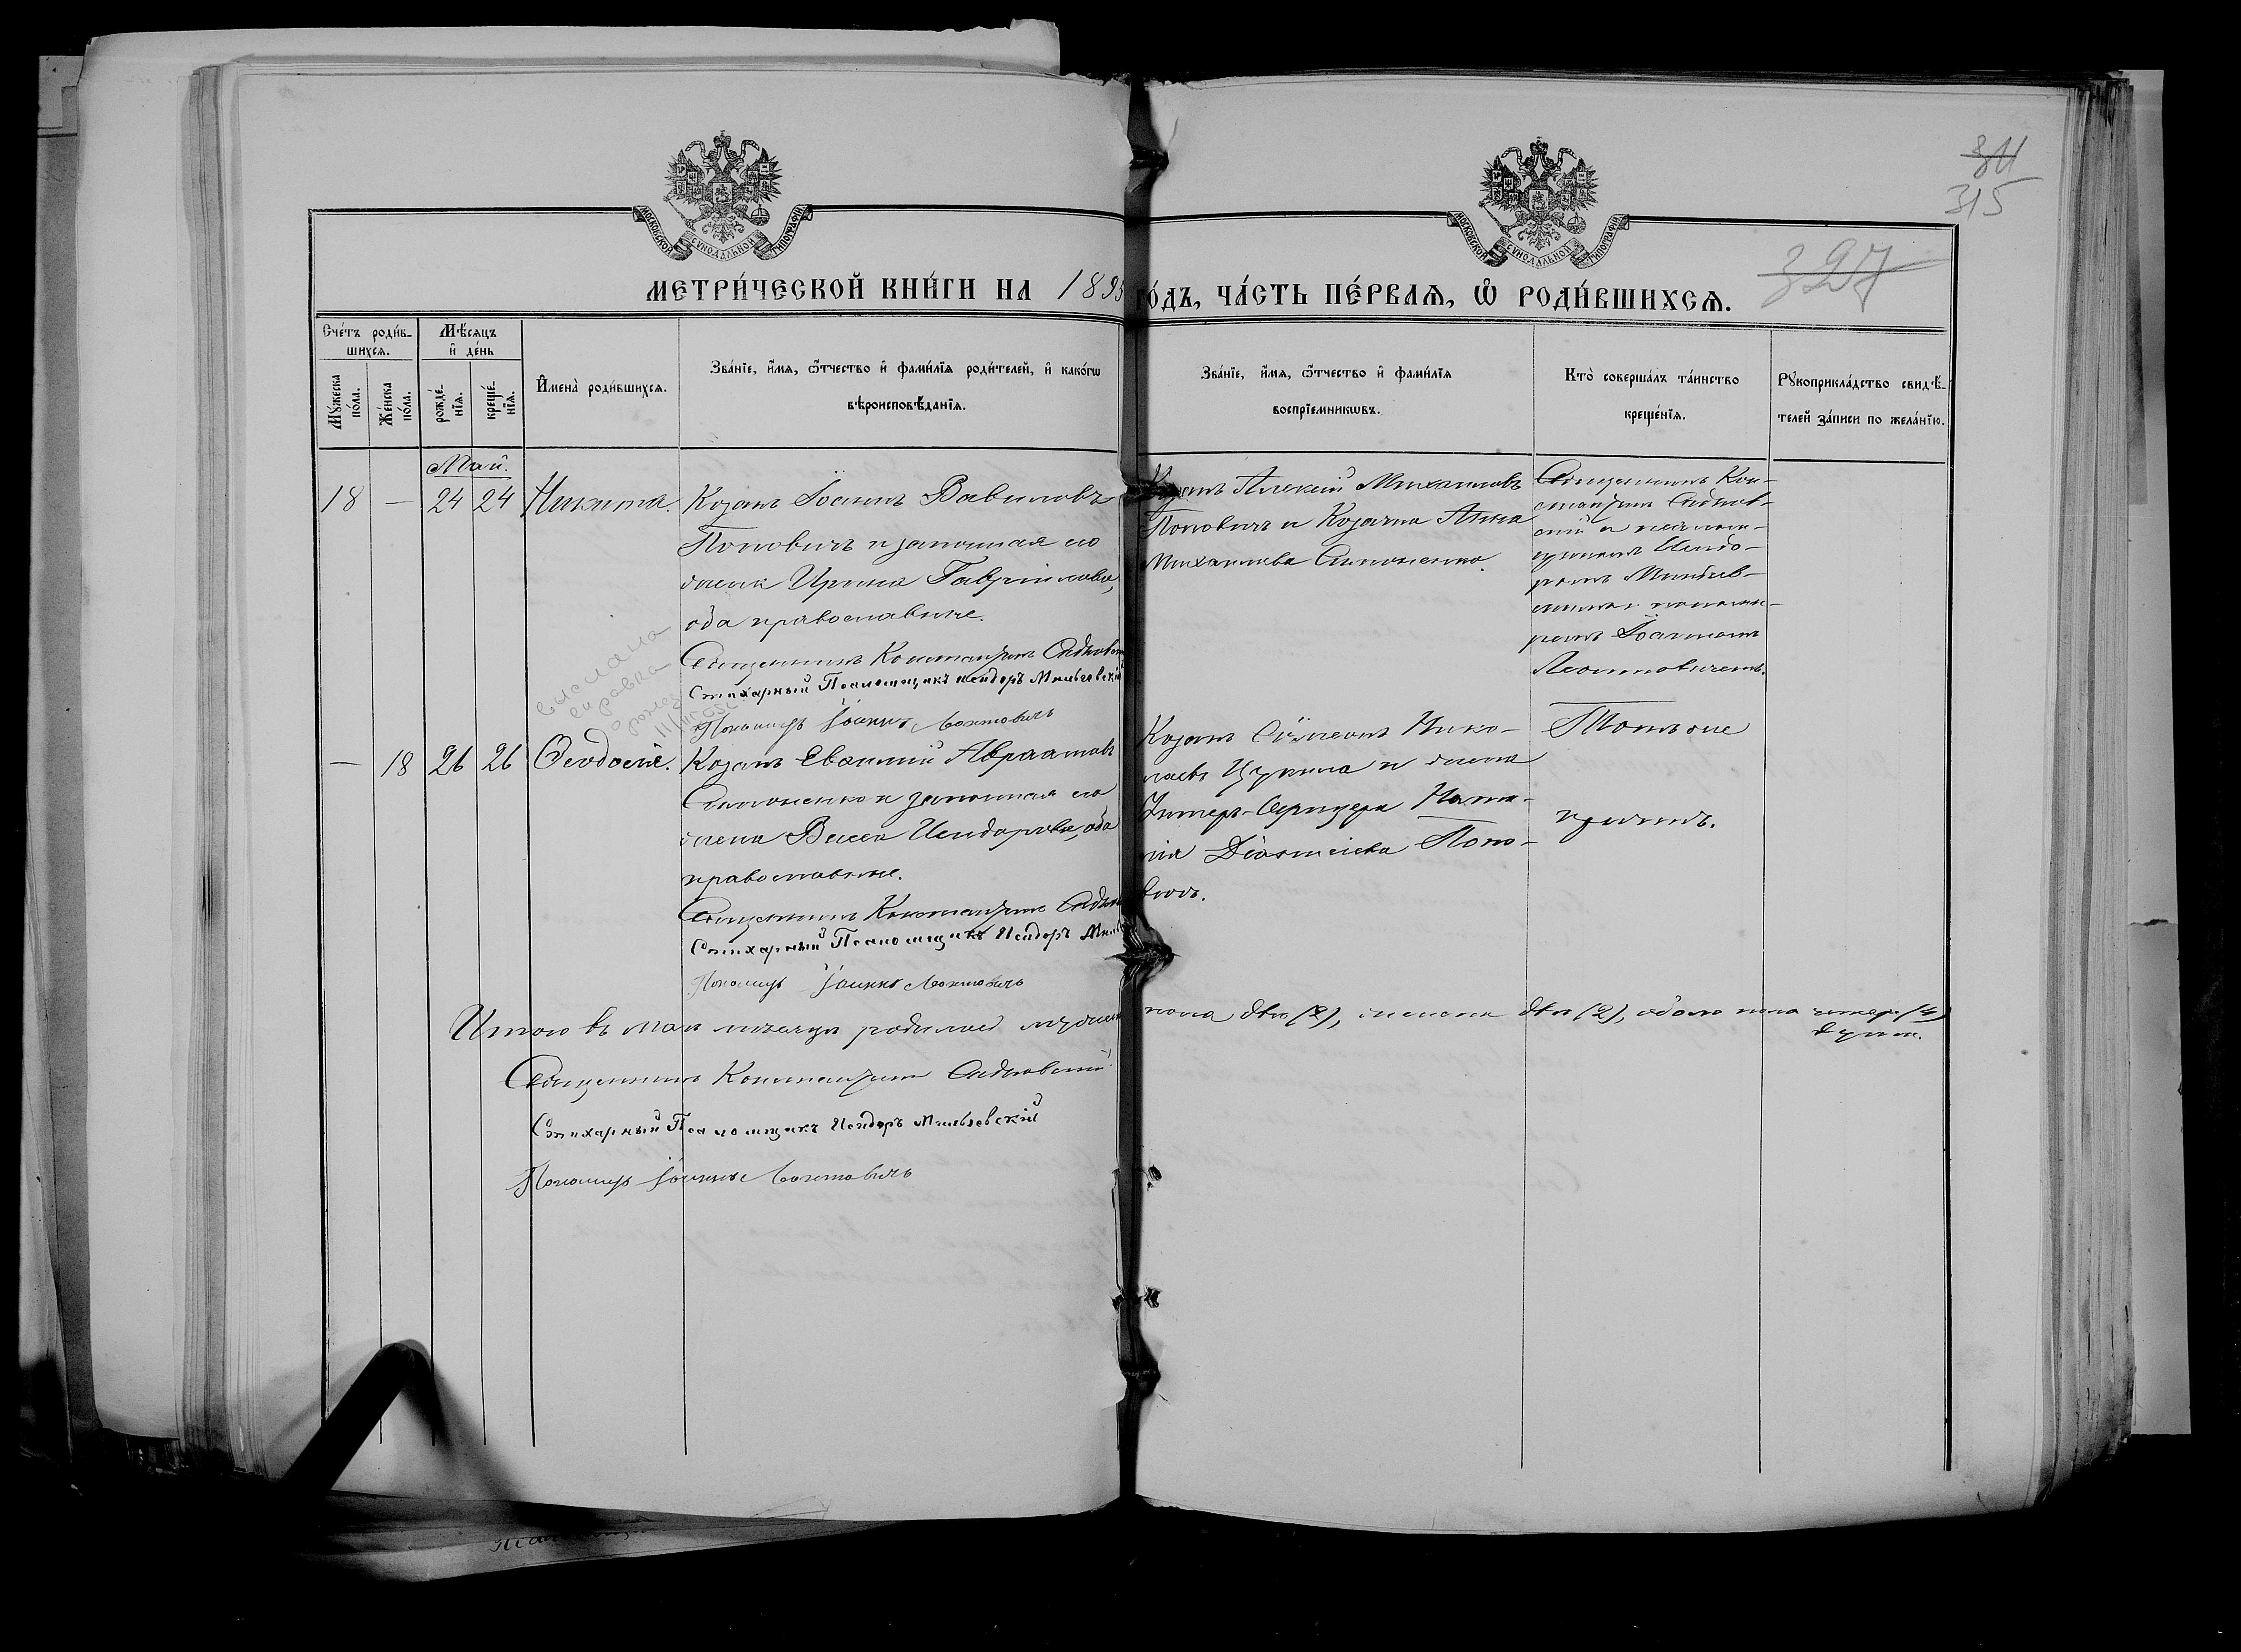 МОСКОВСКОЙ СѴНОДАЛЬНОЙ ТИПОГРАФІИ
МОСКОВСКОЙ СѴНОДАЛЬНОЙ ТИПОГРАФІИ
311
315
327
МЕТРИ́ЧЕСКОЙ КНИ́ГИ НА 1895
ГО́ДЪ, ЧА́СТЬ ПЕ́РВАЯ, Ѡ҆ РОДИ́ВШИХСЯ.
Сче́тъ роди́в-
шихся.
Мꙋ́жеска по́ла.
Же́нска по́ла.
Мѣ́сяцъ
и҆ де́нь
рожде́-
нїя.
креще́-
нїя.
И҆мена̀ роди́вшихся.
Зва́нїе, и҆́мя, ѻ҆́тчество и҆ фами́лїя роди́телей, и҆ како́гѡ
вѣроисповѣ́данїя.
Зва́нїе, и҆́мя, ѻ҆́тчество и҆ фами́лїя
воспрїемникѡвъ.
Кто̀ соверша́лъ та́инство
креще́нїя.
Рꙋкоприкла́дство свидѣ́-
телей за́писи по жела́нїю.
Май.
18 — 24 24 Никита.
Козакъ Іоаннъ Вавиловъ
Поповичъ и законная его
жена Ирина Гавріилова,
оба православные.
Священникъ Константинъ
Стихарный Псаломщикъ Исидоръ Мильевскій
Пономарь Іоаннъ Леонтовичъ
Козакъ Алексій Михаиловъ
Поповичъ и Козачка Анна
Михаилова Симоненко.
Священникъ Кон-
стантинъ
съ псалом-
щикомъ Исидо-
ромъ Мильев-
скимъ и понома-
ремъ Іоанномъ
Леонтовичемъ.
выслана
справка
о рожд
— 18 26 26 Ѳеодосія.
Козакъ Евѳимій Авраамовъ
Симоненко и законная его
жена Васса Исидорова, оба
православные.
Священникъ Константинъ
Стихарный Псаломщикъ Исидоръ
Пономарь Іоаннъ Леонтовичъ
Козакъ Сѵмеонъ Нико-
лаевъ и жена
Унтеръ-Офицера Ната-
лія Попо-
вичъ.
Тотъ же
причтъ.
Итого въ маѣ мѣсяцѣ родилось мужеск
пола два (2), женска два (2), обоего пола четыре (4)
души.
Священникъ Константинъ
Стихарный Псаломщикъ Исидоръ Мильевскій
Пономарь Іоаннъ Леонтовичъ